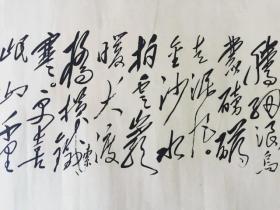 腾细浪乌
蒙磅礴
走泥丸
金沙水
拍云崖
暖大渡
桥横铁索
寒更喜
岷山千里